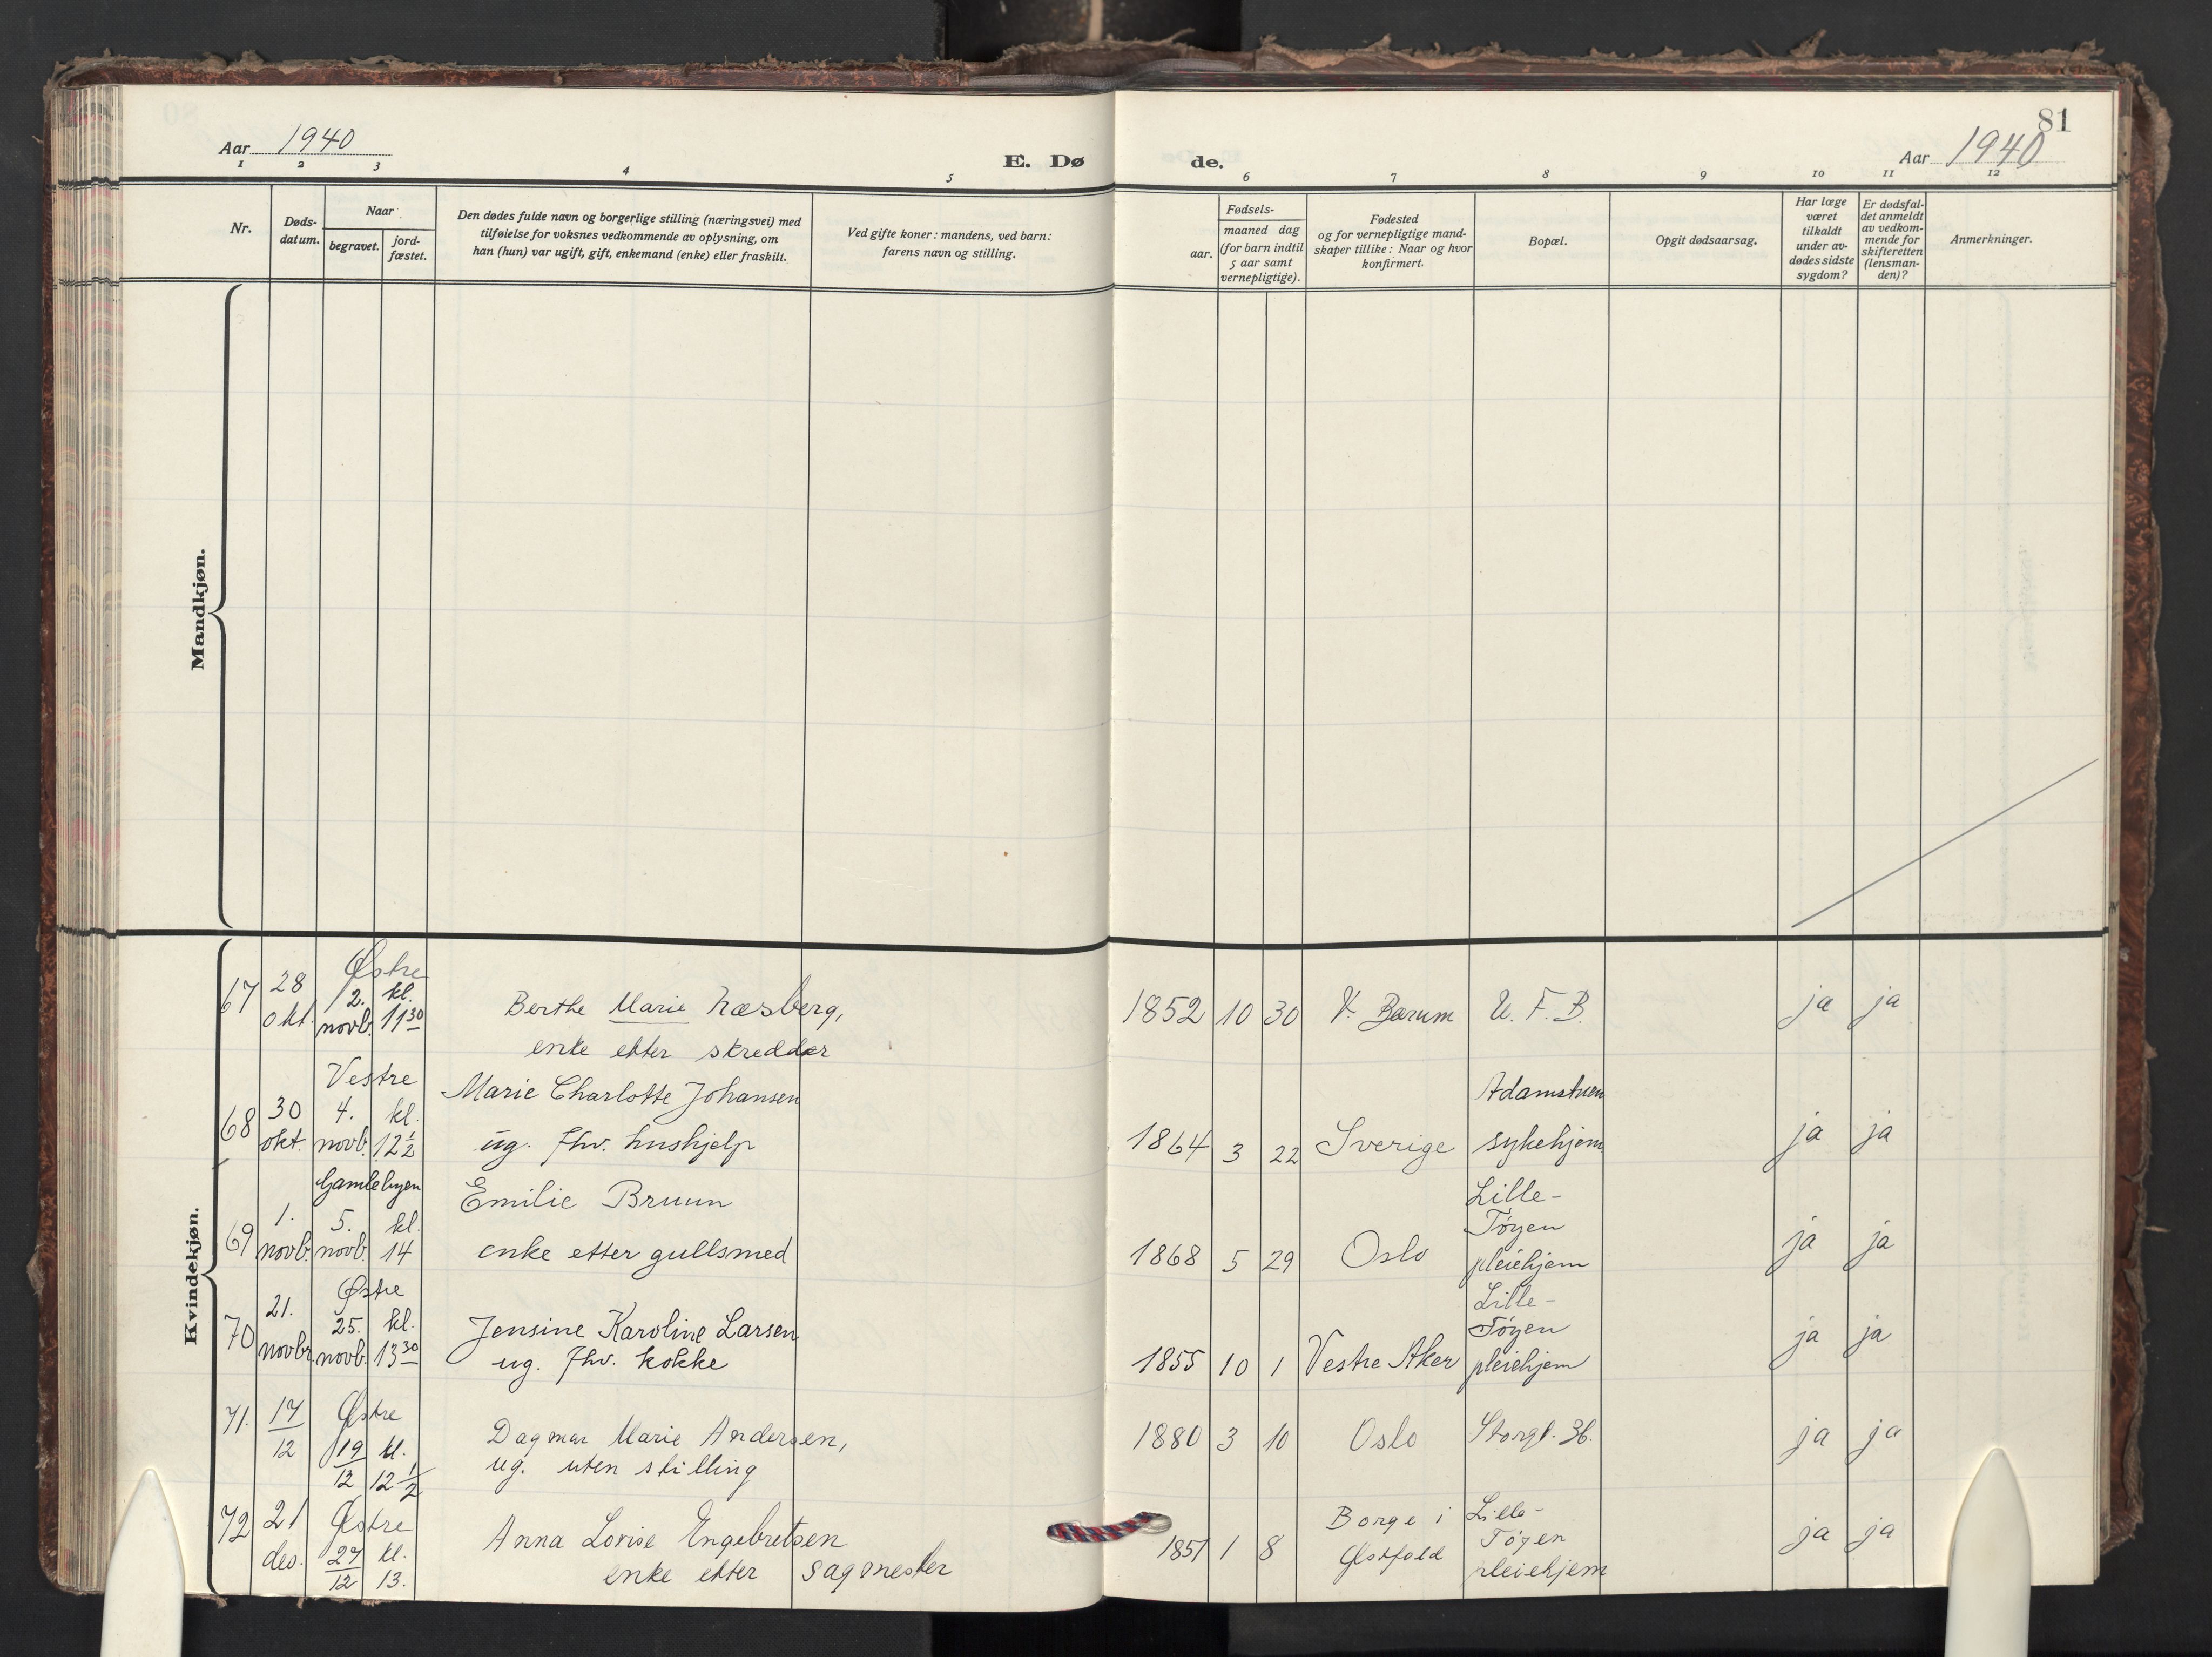 81
Aar 1940
E. Dø
de.
Aar 1940
1 2 3 4 5 6 7 8 9 10 11 12
Nr.
Døds-
datum.
Naar
begravet.
jord-
fæstet.
Den dødes fulde navn og borgerlige stilling (næringsvei) med
tilføielse for voksnes vedkommende av oplysning, om
han (hun) var ugift, gift, enkemand (enke) eller fraskilt.
Ved gifte koner: mandens, ved barn:
farens navn og stilling.
Fødsels-
aar.
maaned dag
(for barn indtil
5 aar samt
vernepligtige).
Fødested
og for vernepligtige mand-
skaper tillike: Naar og hvor
konfirmert.
Bopæl.
Opgit dødsaarsag.
Har læge
været
tilkaldt
under av-
dødes sidste
sygdom?
Er dødsfal-
det anmeldt
av vedkom-
mende for
skifteretten
(lensman-
den)?
Anmerkninger.
Mandkjøn.
Kvindekjøn.
Østre
67 28 2. kl.
okt. novb. 11 30
Berthe Marie Næsberg,
enke etter skredder
1852 10 30 V. Bærum U. F. B. ja ja
Vestre
68 30 4. kl.
okt. novb. 12 1/2
Marie Charlotte Johansen
ug. fhv. hushjelp
1864 3 22 Sverige
Adamstuen
sykehjem
ja ja
Gamlebyen
69 1. 5. kl.
novb. novb. 14
Emilie Bruun
enke etter gullsmed
1868 5 29 Oslo
Lille-
Tøyen
pleiehjem
ja ja
Østre
70 21. 25. kl.
novbr. novb. 13 30
Jensine Karoline Larsen
ug. fhv. kokke
1855 10 1 Vestre Aker
Lille-
Tøyen
pleiehjem
ja ja
71. 17 Østre
12 19 kl.
12 12 1/2
Dagmar Marie Andersen,
ug. uten stilling
1880 3 10 Oslo Storgt. 36. ja ja
72 21 Østre
des. 27 kl.
12 13.
Anna Lovise Engebretsen
enke etter sagmester
1851 1 8
Borge i
Østfold
Lille-
Tøyen
pleiehjem
ja ja